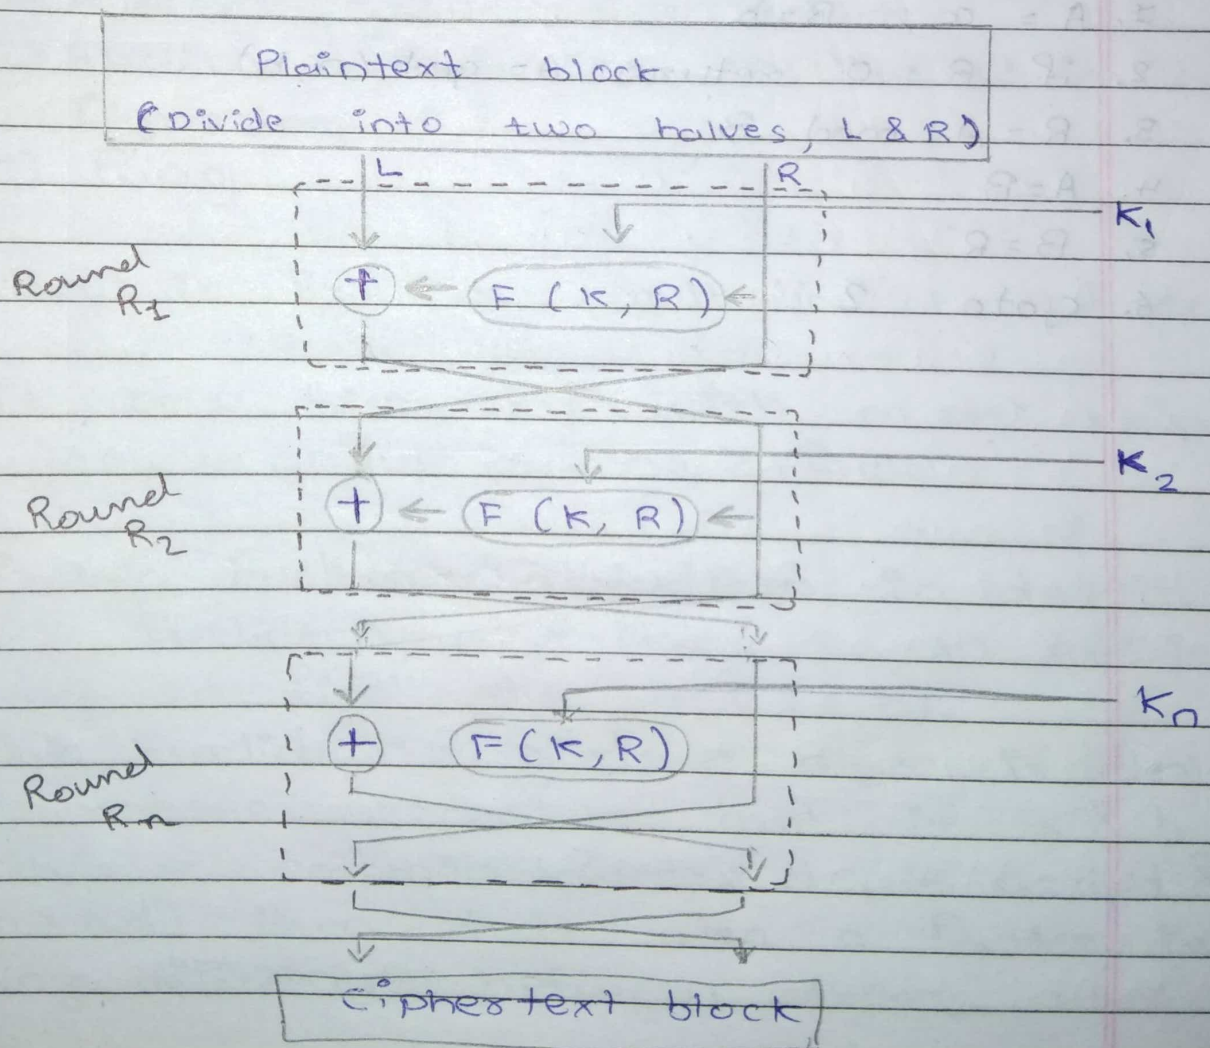 Plaintext block
(Divide into two halves, L & R)
L R
K1
Round
R1
+ F (K, R)
K2
Round
R2
+ F (K, R)
Kn
+ F(K,R)
Round
Rn
Ciphertext block